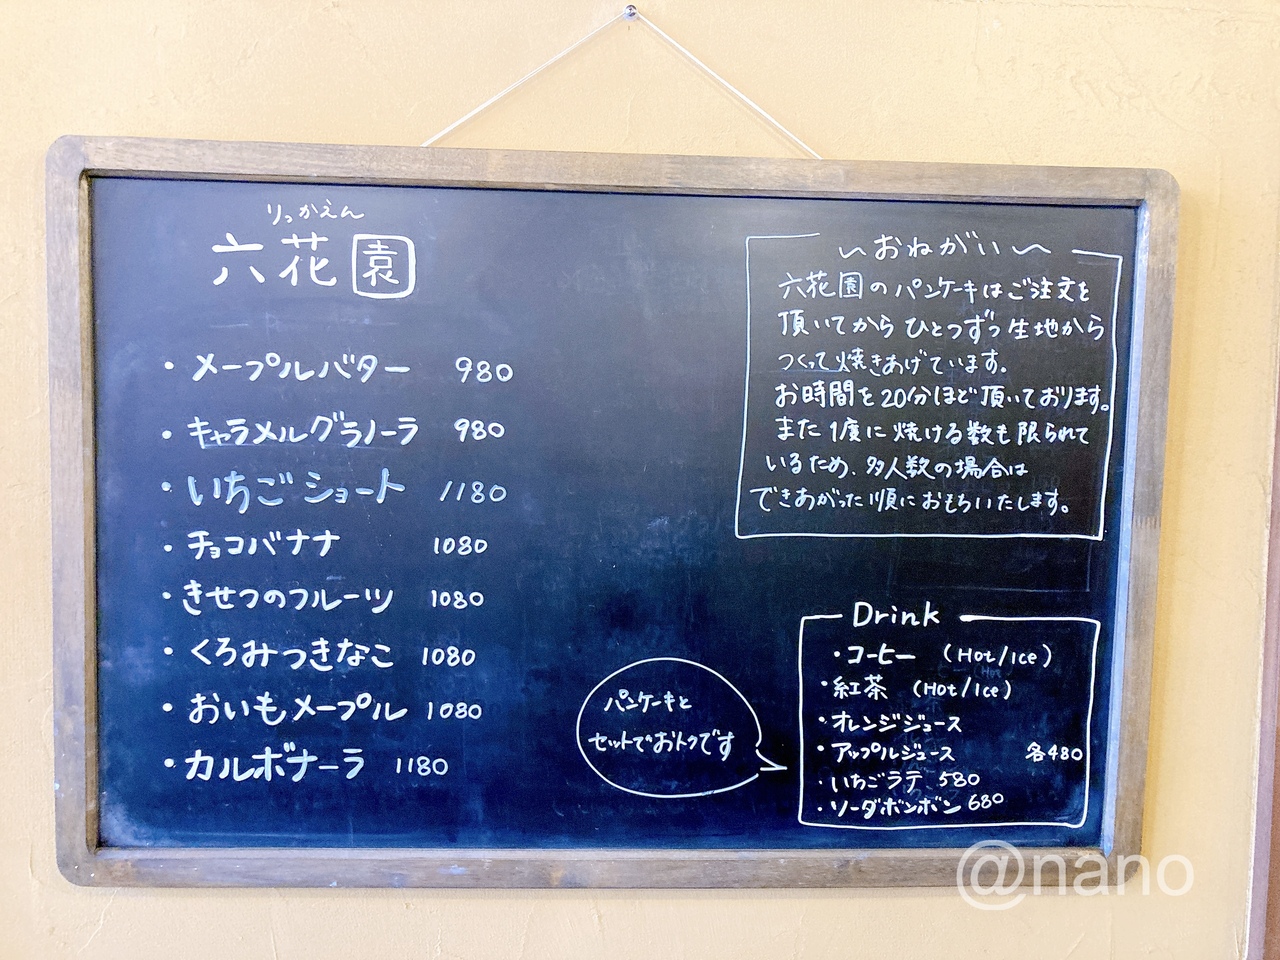 りっかえん
六花園
・メープルバター 980
・キャラメルグラノーラ 980
・いちごショート 1180
・チョコバナナ 1080
・きせつのフルーツ 1080
・くろみつきなこ 1080
・おいもメープル 1080
・カルボナーラ 1180
〜おねがい〜
六花園のパンケーキはご注文を
頂いてから ひとつずつ生地から
つくって焼きあげています。
お時間を20分ほど頂いております。
また1度に焼ける数も限られて
いるため、多人数の場合は
できあがった順におもちいたします。
パンケーキと
セットでおトクです
Drink
・コーヒー (Hot/Ice)
・紅茶 (Hot/Ice)
・オレンジジュース
・アップルジュース 各480
・いちごラテ 580
・ソーダボンボン 680
@nano